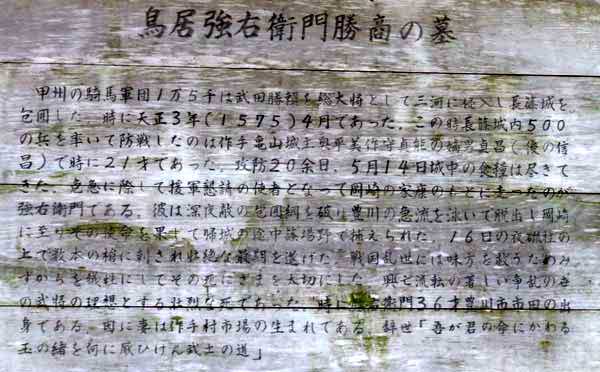 鳥居強右衛門勝商の墓
甲州の騎馬軍団1万5千は武田勝頼を総大将として三河に侵入し長篠城を、
包囲した。時に天正3年(1575)4月であった。この時長篠城内500
の兵を率いて防戦したのは作手亀山城主奥平美作守貞能の嫡男貞昌(後の信
昌)で時に21才であった。攻防20余日、5月14日城中の食糧は尽きて
きた。危急に際して援軍懇請の使者となって岡崎の家康のもとに走ったのが
強右衛門である。彼は深夜敵の包囲網を破り豊川の急流を泳いで脱出し岡崎
に至りその使命を果して帰城の途中篠場野で捕えられた。16日の夜磔柱の
上で数本の槍に刺され壮絶な最期を遂げた。戦国乱世には味方を救うためみ
ずからを犠牲にしてその死にざまを大切にした。興亡流転の著しい争乱の世
の武将の理想とする壮烈な死であった。時に強右衛門36才豊川市市田の出
身である。因に妻は作手村市場の生まれである。辞世「吾が君の命にかわる
玉の緒を何に厭ひけん武士の道」